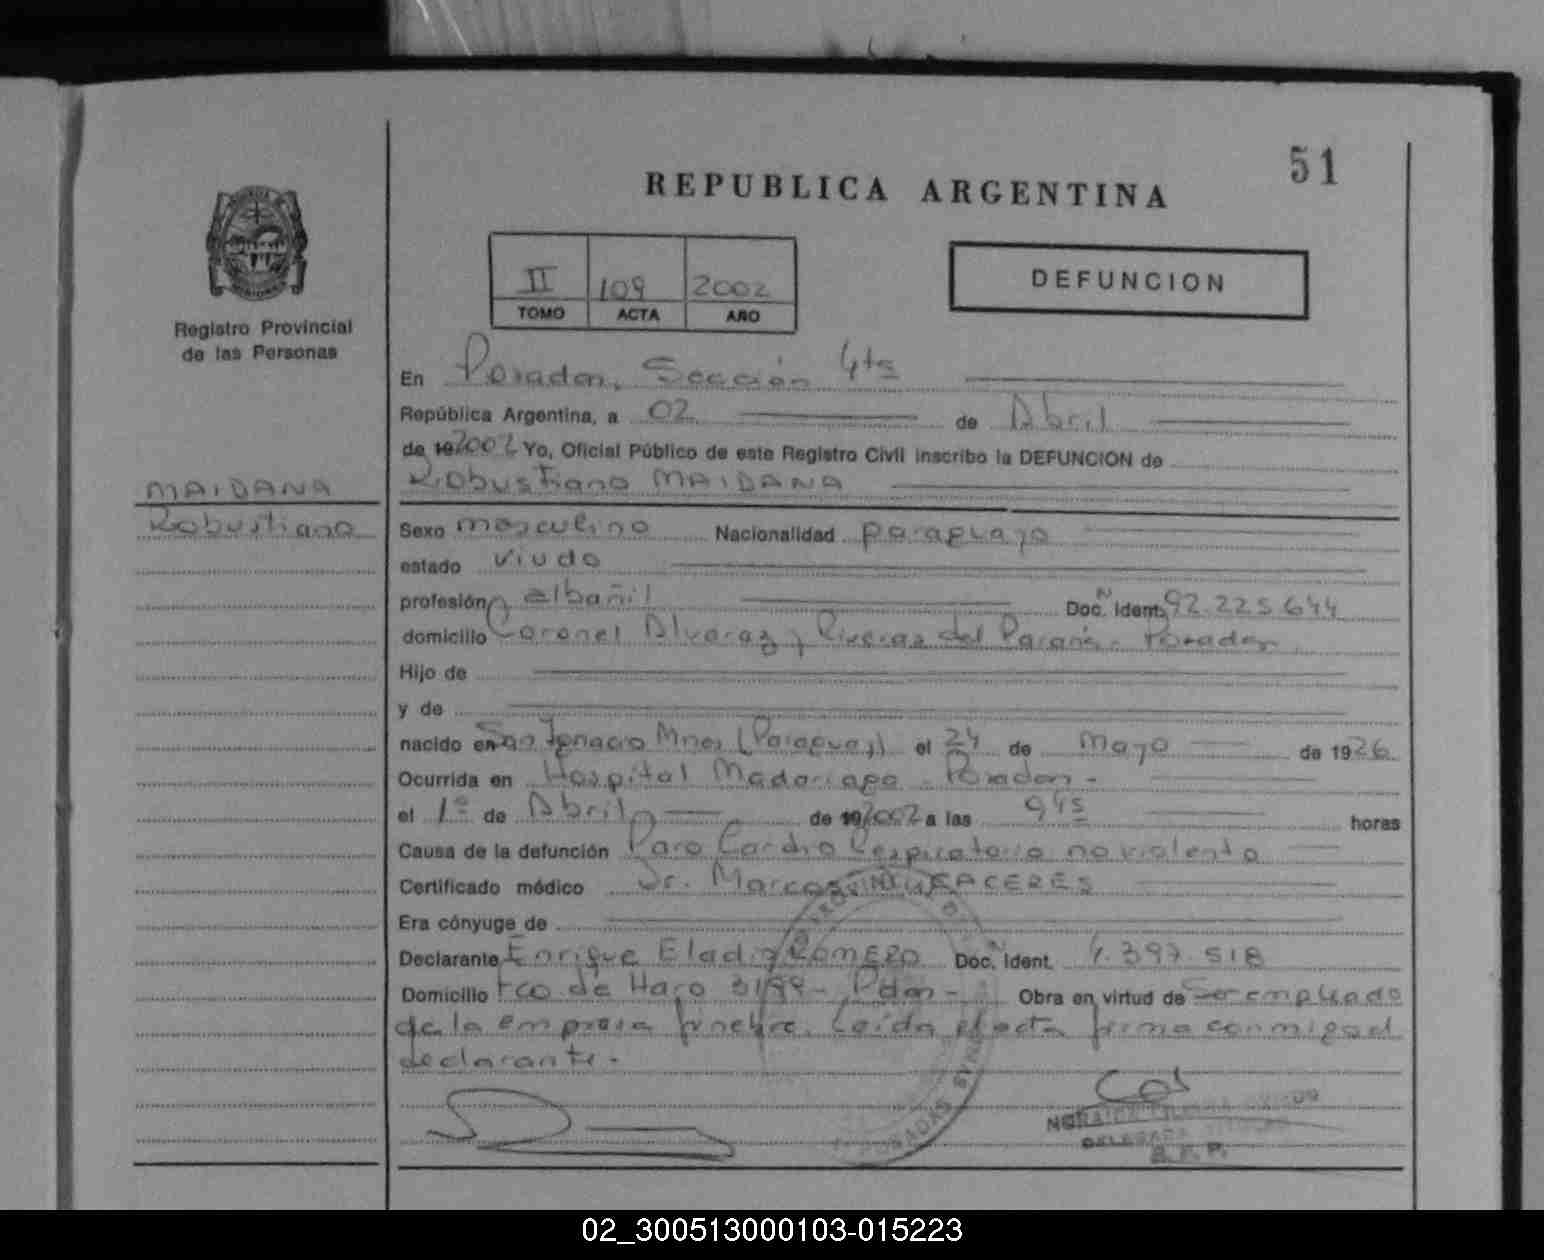 51
REPUBLICA ARGENTINA
II 109 2002
TOMO ACTA AÑO
DEFUNCION
Registro Provincial
de las Personas
En Posadas, Sección 4ta
República Argentina, a 02 de Abril
de 19 2002 Yo, Oficial Público de este Registro Civil inscribo la DEFUNCION de
Robustiano MAIDANA
MAIDANA
Robustiano
Sexo masculino Nacionalidad paraguayo
estado viudo
profesión albañil Doc. N Ident. 92.225.644
domicilio Coronel Alvarez y Riveras del Paraná - Posadas
Hijo de
y de
nacido en San Ignacio Mnes (Paraguay) el 24 de Mayo de 1926
Ocurrida en Hospital Madariaga - Posadas -
el 1º de Abril de 19 2002 a las 945 horas
Causa de la defunción Paro Cardio Respiratorio no violento
Certificado médico Dr. Marcos CACERES
Era cónyuge de
Declarante Enrique Eladio ROMERO Doc. N Ident. 4.397.518
Domicilio Fco de Haro 3199 - Pdas - Obra en virtud de Ser empleado
de la empresa fúnebre. Leída el acta firma conmigo el
declarante.-
POSADAS
DELEGADA
R.P.P.
02_300513000103-015223